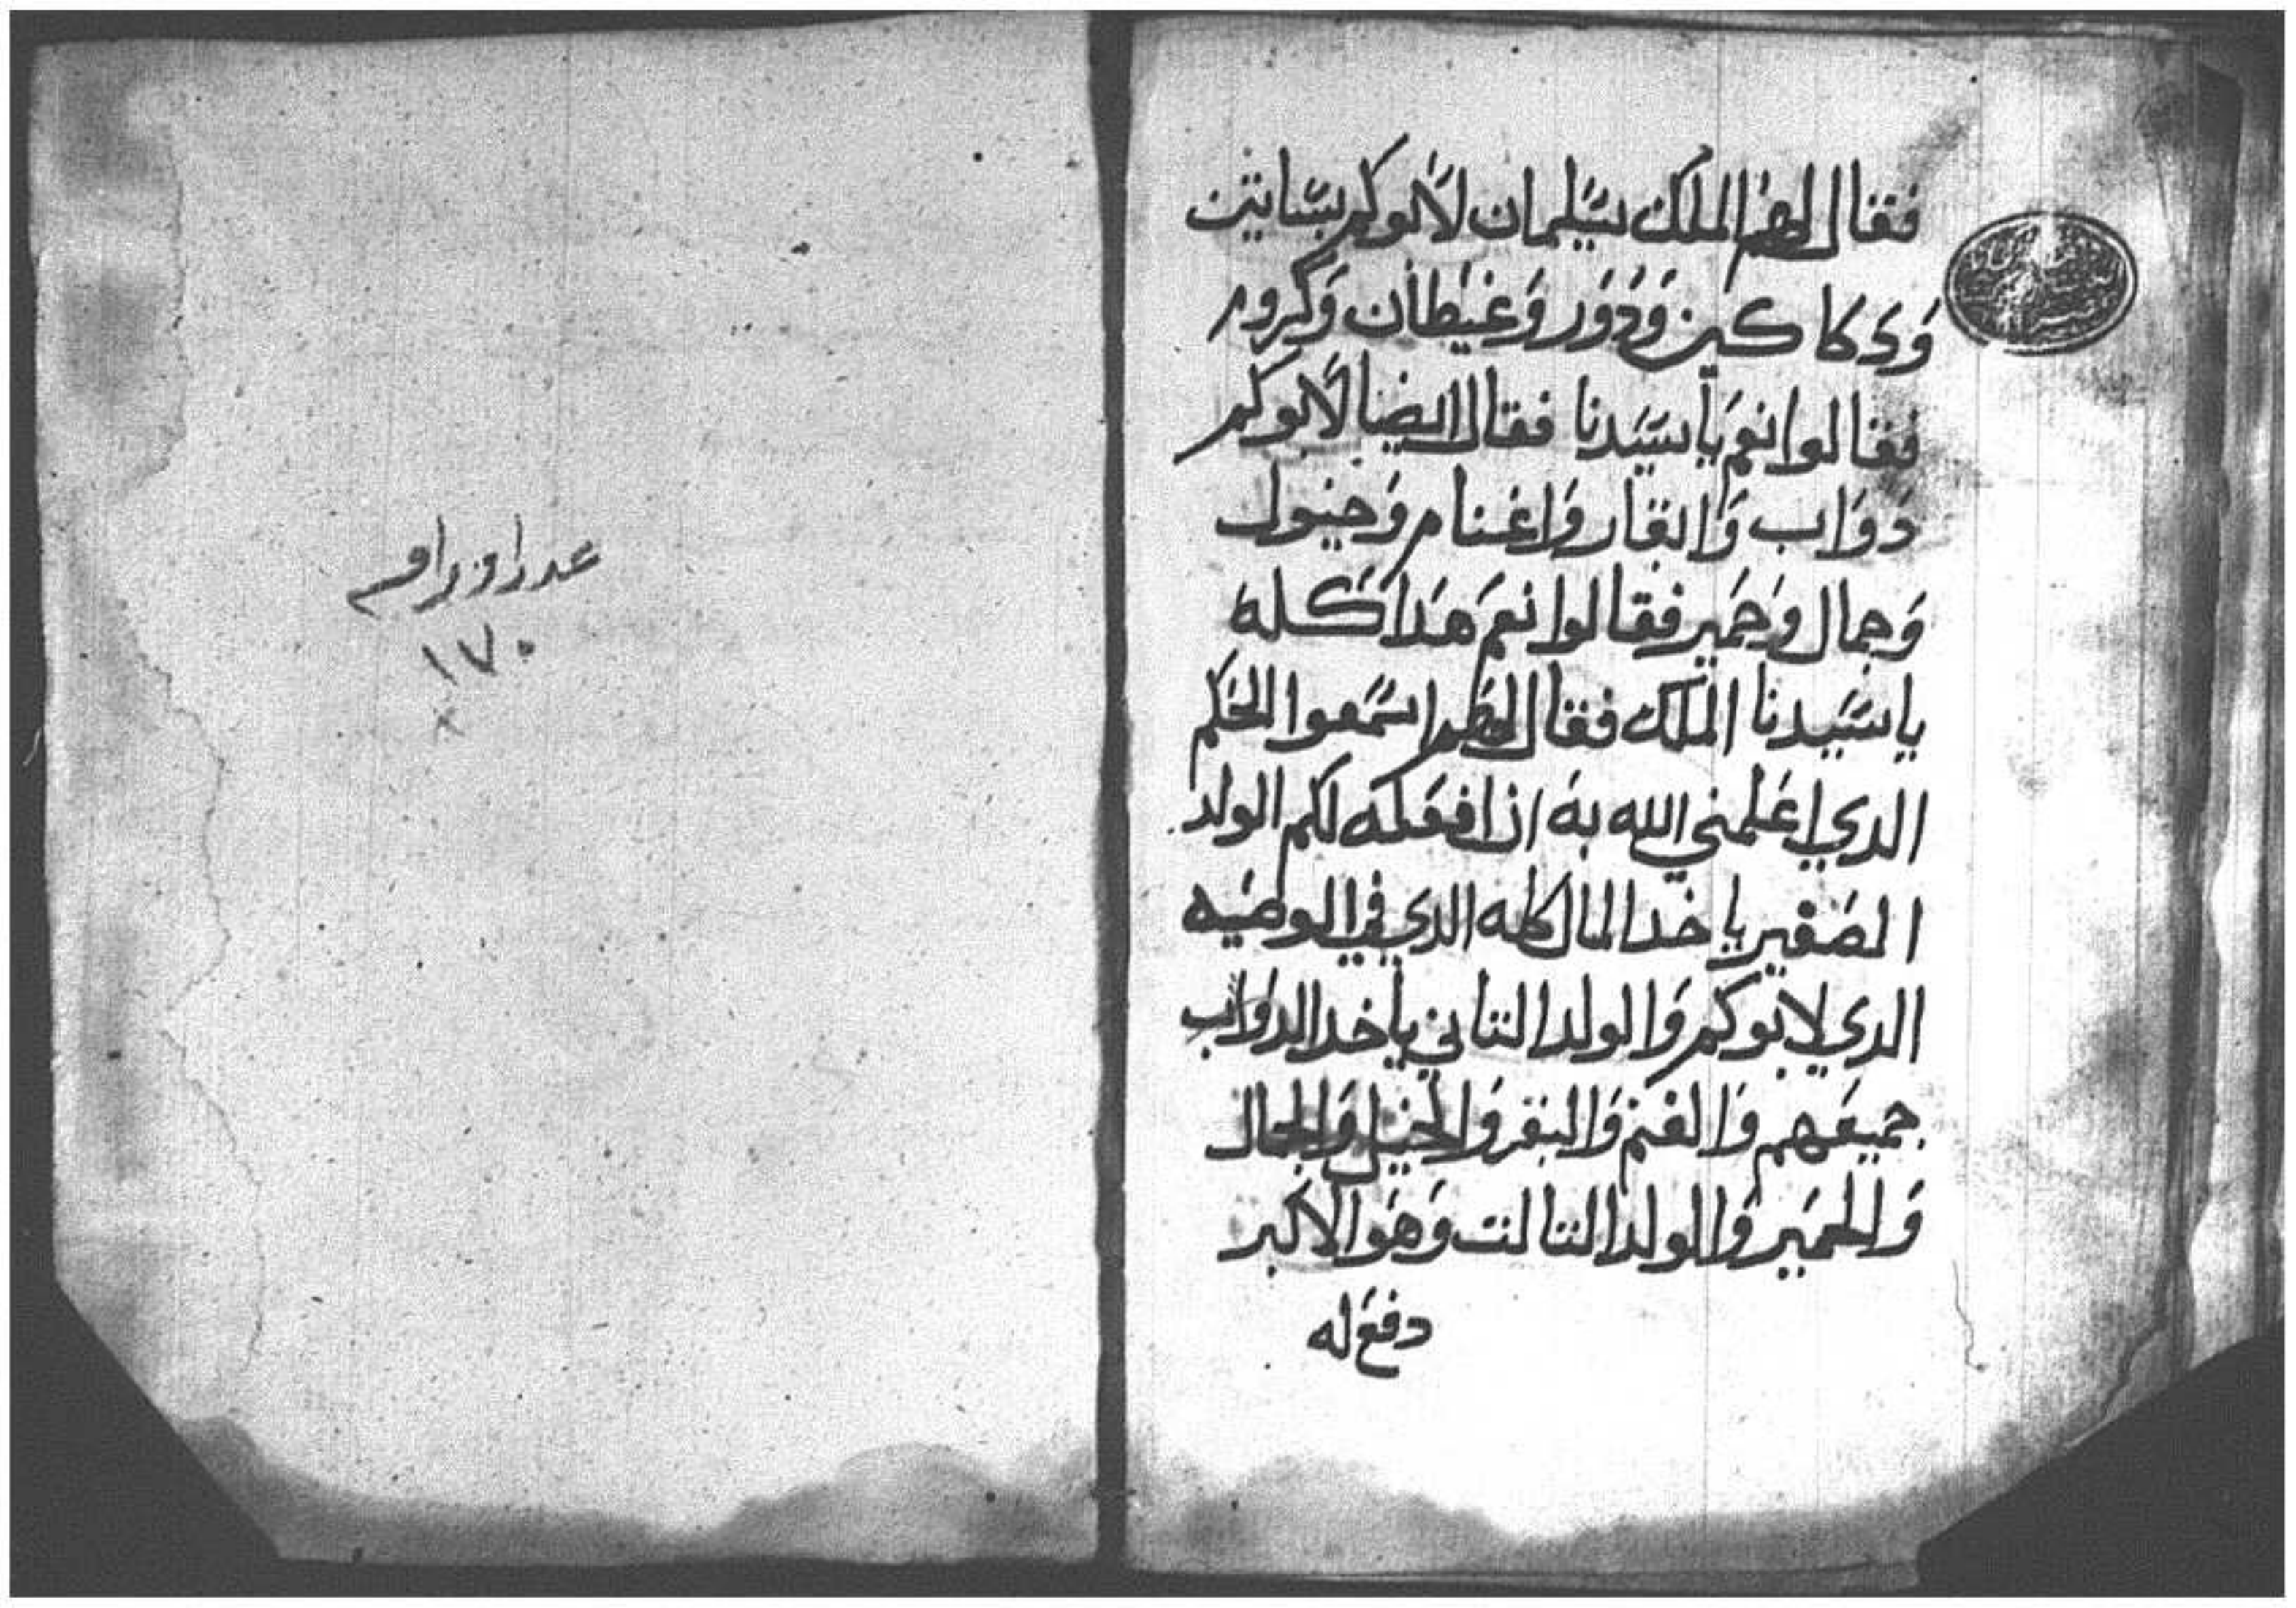 فقال لهم الملك سليمان لابوكم بساتين
ودكاكين ودور وغيطان وكروم
فقالوا نعم ياسيدنا فقال ايضا لابوكم
دواب وابقار واغنام وخيول
وجمال وحمير فقالوا نعم هدا كله
ياسيدنا الملك فقال لهم اسمعوا الحكم
الدي اعلمني الله به ان افعله لكم الولد
الصغير ياخد المال كله الدي في الوصيه
الدي لابوكم والولد التاني ياخد الدواب
جميعهم والغنم والبقر والخيل والجمال
والحمير والولد التالت وهو الاكبر
دفع له
عدد اوراقه
١٧٠